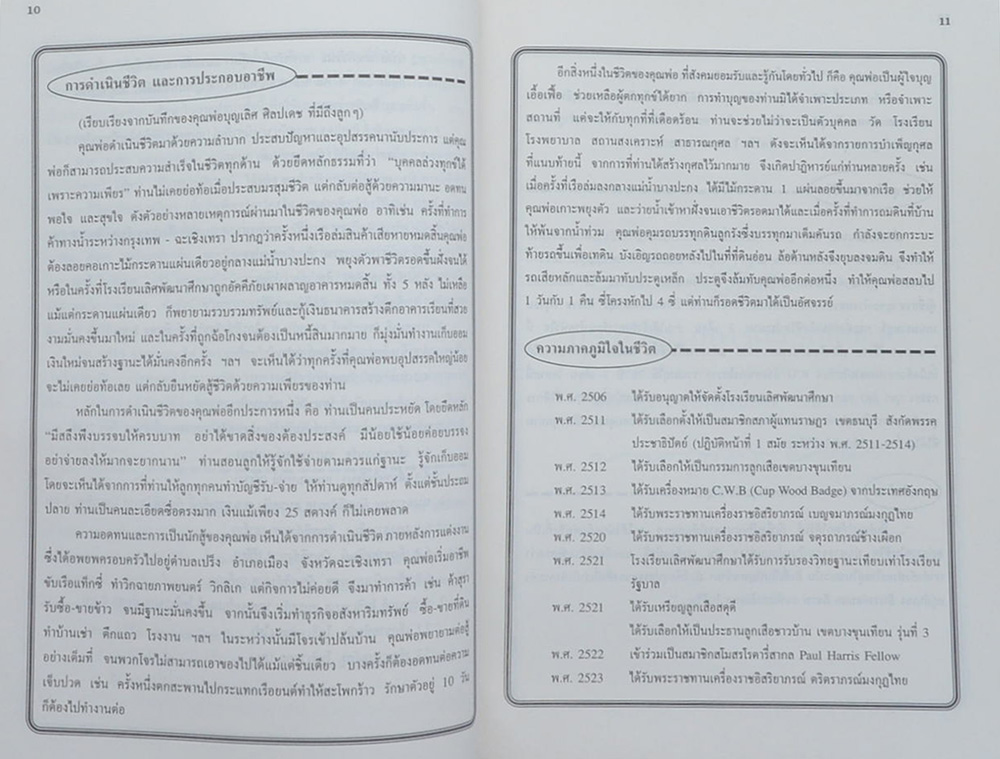 10
การดำเนินชีวิต และการประกอบอาชีพ
(เรียบเรียงจากบันทึกของคุณพ่อบุญเลิศ ศิลปเดช ที่มีถึงลูกๆ)
คุณพ่อดำเนินชีวิตมาด้วยความลำบาก ประสบปัญหาและอุปสรรคนานับประการ แต่คุณ
พ่อก็สามารถประสบความสำเร็จในชีวิตทุกด้าน ด้วยยึดหลักธรรมที่ว่า "บุคคลล่วงทุกข์ได้
เพราะความเพียร" ท่านไม่เคยย่อท้อเมื่อประสบมรสุมชีวิต แต่กลับต่อสู้ด้วยความมานะ อดทน
พอใจ และสุขใจ ดังตัวอย่างหลายเหตุการณ์ผ่านมาในชีวิตของคุณพ่อ อาทิเช่น ครั้งที่ทำการ
ค้าทางน้ำระหว่างกรุงเทพ - ฉะเชิงเทรา ปรากฏว่าครั้งหนึ่งเรือล่มสินค้าเสียหายหมดสิ้นคุณพ่อ
ต้องลอยคอเกาะไม้กระดานแผ่นเดียวอยู่กลางแม่น้ำบางปะกง พยุงตัวพาชีวิตรอดขึ้นฝั่งจนได้
หรือในครั้งที่โรงเรียนเลิศพัฒนาศึกษาถูกอัคคีภัยเผาผลาญอาคารหมดสิ้น ทั้ง 5 หลัง ไม่เหลือ
แม้แต่กระดานแผ่นเดียว ก็พยายามรวบรวมทรัพย์และกู้เงินธนาคารสร้างตึกอาคารเรียนที่สวย
งามมั่นคงขึ้นมาใหม่ และในครั้งที่ถูกฉ้อโกงจนต้องเป็นหนี้สินมากมาย ก็มุ่งมั่นทำงานเก็บออม
เงินใหม่จนสร้างฐานะได้มั่นคงอีกครั้ง ฯลฯ จะเห็นได้ว่าทุกครั้งที่คุณพ่อพบอุปสรรคใหญ่น้อย
จะไม่เคยย่อท้อเลย แต่กลับยืนหยัดสู้ชีวิตด้วยความเพียรของท่าน
หลักในการดำเนินชีวิตของคุณพ่ออีกประการหนึ่ง คือ ท่านเป็นคนประหยัด โดยยึดหลัก
"มีสลึงพึงบรรจบให้ครบบาท อย่าได้ขาดสิ่งของต้องประสงค์ มีน้อยใช้น้อยค่อยบรรจง
อย่าจ่ายลงให้มากจะยากนาน" ท่านสอนลูกให้รู้จักใช้จ่ายตามควรแก่ฐานะ รู้จักเก็บออม
โดยจะเห็นได้จากการที่ท่านให้ลูกทุกคนทำบัญชีรับ-จ่าย ให้ท่านดูทุกสัปดาห์ ตั้งแต่ชั้นประถม
ปลาย ท่านเป็นคนละเอียดซื่อตรงมาก เงินแม้เพียง 25 สตางค์ ก็ไม่เคยพลาด
ความอดทนและการเป็นนักสู้ของคุณพ่อ เห็นได้จากการดำเนินชีวิต ภายหลังการแต่งงาน
ซึ่งได้อพยพครอบครัวไปอยู่ตำบลเปร็ง อำเภอเมือง จังหวัดฉะเชิงเทรา คุณพ่อเริ่มอาชีพ
ขับเรือแท็กซี่ ทำวิกฉายภาพยนตร์ วิกลิเก แต่กิจการไม่ค่อยดี จึงมาทำการค้า เช่น ค้าสุรา
รับซื้อ-ขายข้าว จนมีฐานะมั่นคงขึ้น จากนั้นจึงเริ่มทำธุรกิจอสังหาริมทรัพย์ ซื้อ-ขายที่ดิน
ทำบ้านเช่า ตึกแถว โรงงาน ฯลฯ ในระหว่างนั้นมีโจรเข้าปล้นบ้าน คุณพ่อพยายามต่อสู้
อย่างเต็มที่ จนพวกโจรไม่สามารถเอาของไปได้แม้แต่ชิ้นเดียว บางครั้งก็ต้องอดทนต่อความ
เจ็บปวด เช่น ครั้งหนึ่งตกสะพานไปกระแทกเรือยนต์ทำให้สะโพกร้าว รักษาตัวอยู่ 10 วัน
ก็ต้องไปทำงานต่อ
11
อีกสิ่งหนึ่งในชีวิตของคุณพ่อ ที่สังคมยอมรับและรู้กันโดยทั่วไป ก็คือ คุณพ่อเป็นผู้ใจบุญ
เอื้อเฟื้อ ช่วยเหลือผู้ตกทุกข์ได้ยาก การทำบุญของท่านมิได้จำเพาะประเภท หรือจำเพาะ
สถานที่ แต่จะให้กับทุกที่ที่เดือดร้อน ท่านจะช่วยไม่ว่าจะเป็นตัวบุคคล วัด โรงเรียน
โรงพยาบาล สถานสงเคราะห์ สาธารณกุศล ฯลฯ ดังจะเห็นได้จากรายการบำเพ็ญกุศล
ที่แนบท้ายนี้ จากการที่ท่านได้สร้างกุศลไว้มากมาย จึงเกิดปาฏิหารย์แก่ท่านหลายครั้ง เช่น
เมื่อครั้งที่เรือล่มลงกลางแม่น้ำบางปะกง ได้มีไม้กระดาน 1 แผ่นลอยขึ้นมาจากเรือ ช่วยให้
คุณพ่อเกาะพยุงตัว และว่ายน้ำเข้าหาฝั่งจนเอาชีวิตรอดมาได้และเมื่อครั้งที่ทำการถมดินที่บ้าน
ให้พ้นจากน้ำท่วม คุณพ่อคุมรถบรรทุกดินลูกรังซึ่งบรรทุกมาเต็มคันรถ กำลังจะยกกระบะ
ท้ายรถขึ้นเพื่อเทดิน บังเอิญรถถอยหลังไปในที่ที่ดินอ่อน ล้อด้านหลังจึงยุบลงจมดิน จึงทำให้
รถเสียหลักและล้มมาทับประตูเหล็ก ประตูจึงล้มทับคุณพ่ออีกต่อหนึ่ง ทำให้คุณพ่อสลบไป
1 วันกับ 1 คืน ซี่โครงหักไป 4 ซี่ แต่ท่านก็รอดชีวิตมาได้เป็นอัศจรรย์
ความภาคภูมิใจในชีวิต
พ.ศ. 2506 ได้รับอนุญาตให้จัดตั้งโรงเรียนเลิศพัฒนาศึกษา
พ.ศ. 2511 ได้รับเลือกตั้งให้เป็นสมาชิกสภาผู้แทนราษฎร เขตธนบุรี สังกัดพรรค
ประชาธิปัตย์ (ปฏิบัติหน้าที่ 1 สมัย ระหว่าง พ.ศ. 2511-2514)
พ.ศ. 2512 ได้รับเลือกให้เป็นกรรมการลูกเสือเขตบางขุนเทียน
พ.ศ. 2513 ได้รับเครื่องหมาย C.W.B (Cup Wood Badge) จากประเทศอังกฤษ
พ.ศ. 2514 ได้รับพระราชทานเครื่องราชอิสริยาภรณ์ เบญจมาภรณ์มงกุฎไทย
พ.ศ. 2520 ได้รับพระราชทานเครื่องราชอิสริยาภรณ์ จตุรถาภรณ์ช้างเผือก
พ.ศ. 2521 โรงเรียนเลิศพัฒนาศึกษาได้รับการรับรองวิทยฐานะเทียบเท่าโรงเรียน
รัฐบาล
พ.ศ. 2521 ได้รับเหรียญลูกเสือสดุดี
ได้รับเลือกให้เป็นประธานลูกเสือชาวบ้าน เขตบางขุนเทียน รุ่นที่ 3
พ.ศ. 2522 เข้าร่วมเป็นสมาชิกสโมสรโรตารี่สากล Paul Harris Fellow
พ.ศ. 2523 ได้รับพระราชทานเครื่องราชอิสริยาภรณ์ ตริตราภรณ์มงกุฎไทย